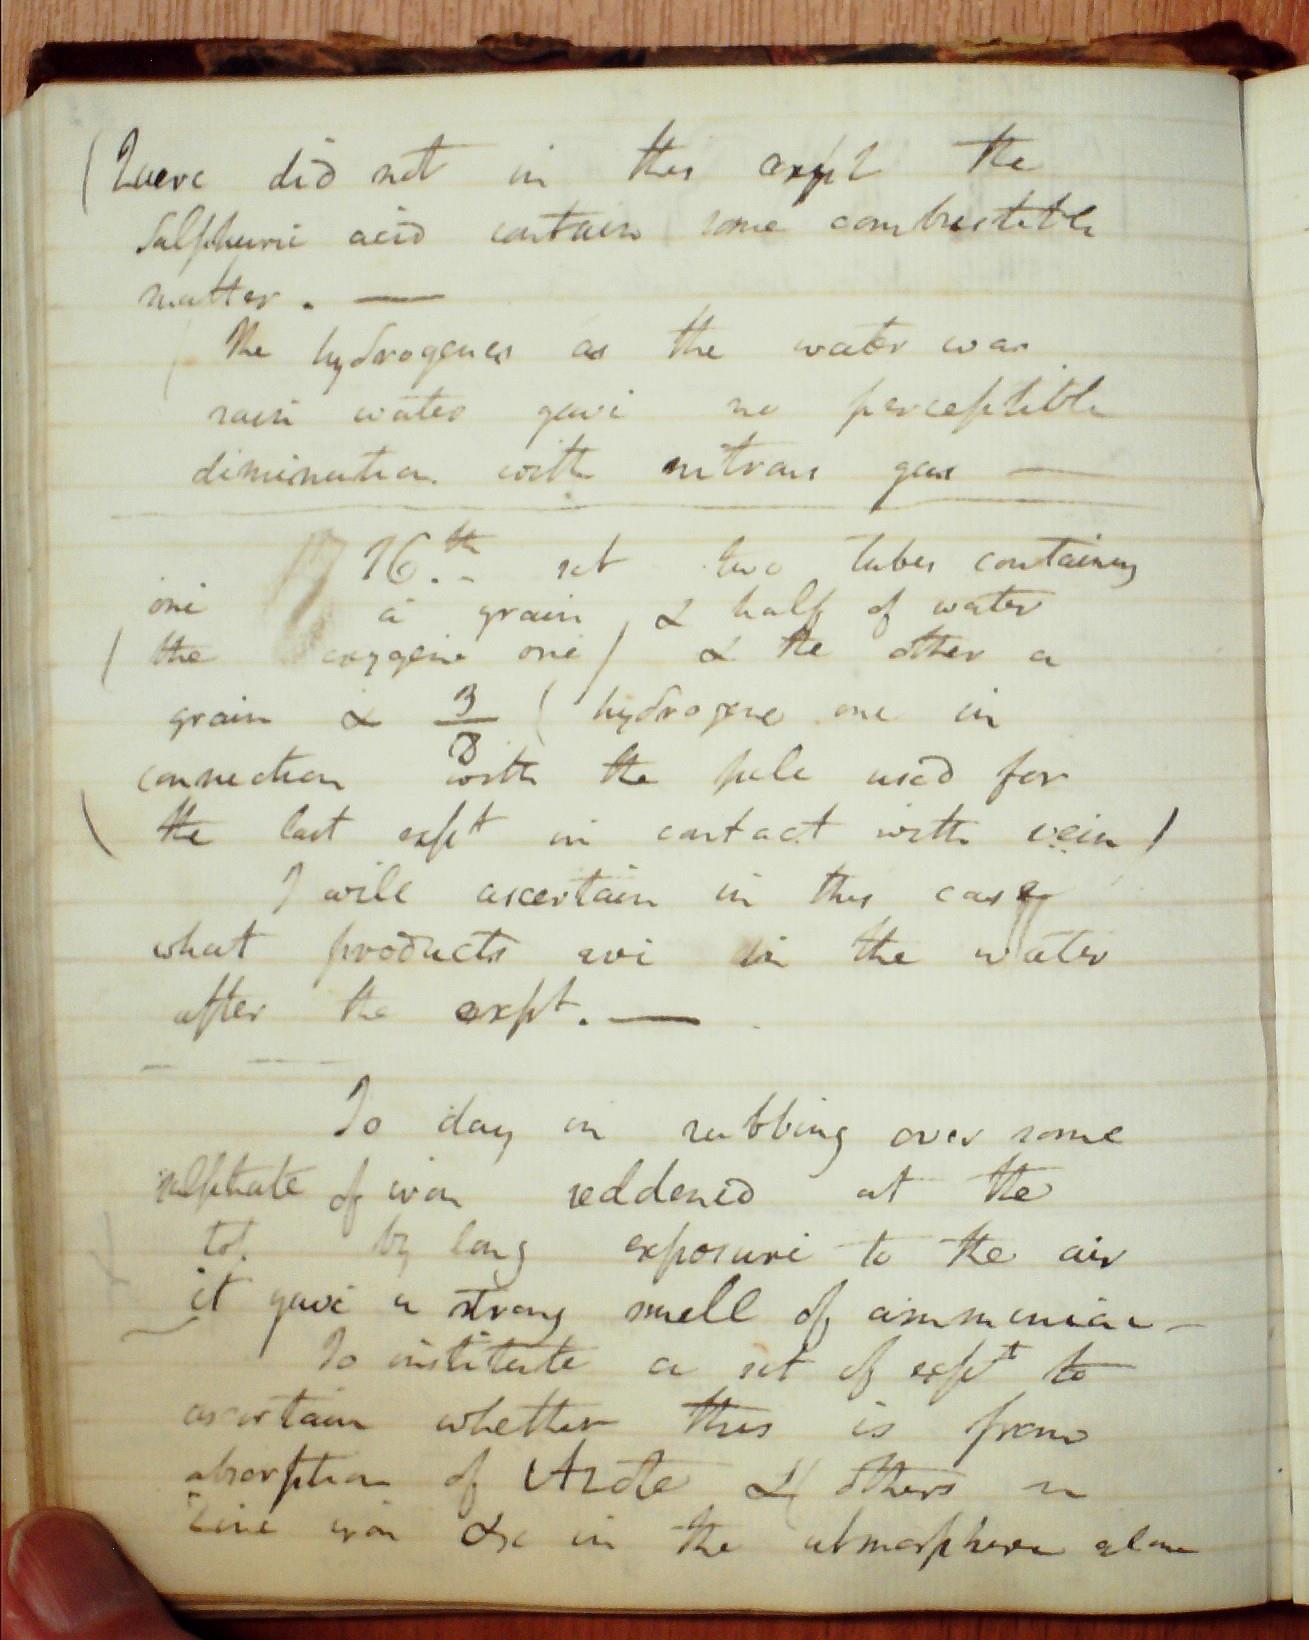 (Quere did not in this expt the
Sulphuric acid contain some combustible
matter. —
The hydrogenes as the water was
rain water gave no perceptible
diminution with nitrous gas —
16.th set two tubes containing
one a grain & half of water
(the oxygene one) & the other a
grain & 3/8 (hydrogene one in
connection with the pole used for
(the last expt in contact with vein)
I will ascertain in this case
what products are in the water
after the expt. —
To day in rubbing over some
sulphate of iron reddened at the
by long exposure to the air
it gave a strong smell of ammonia —
To institute a set of expt to
ascertain whether this is from
absorption of Azote & others
Zinc iron &c in the atmosphere alone